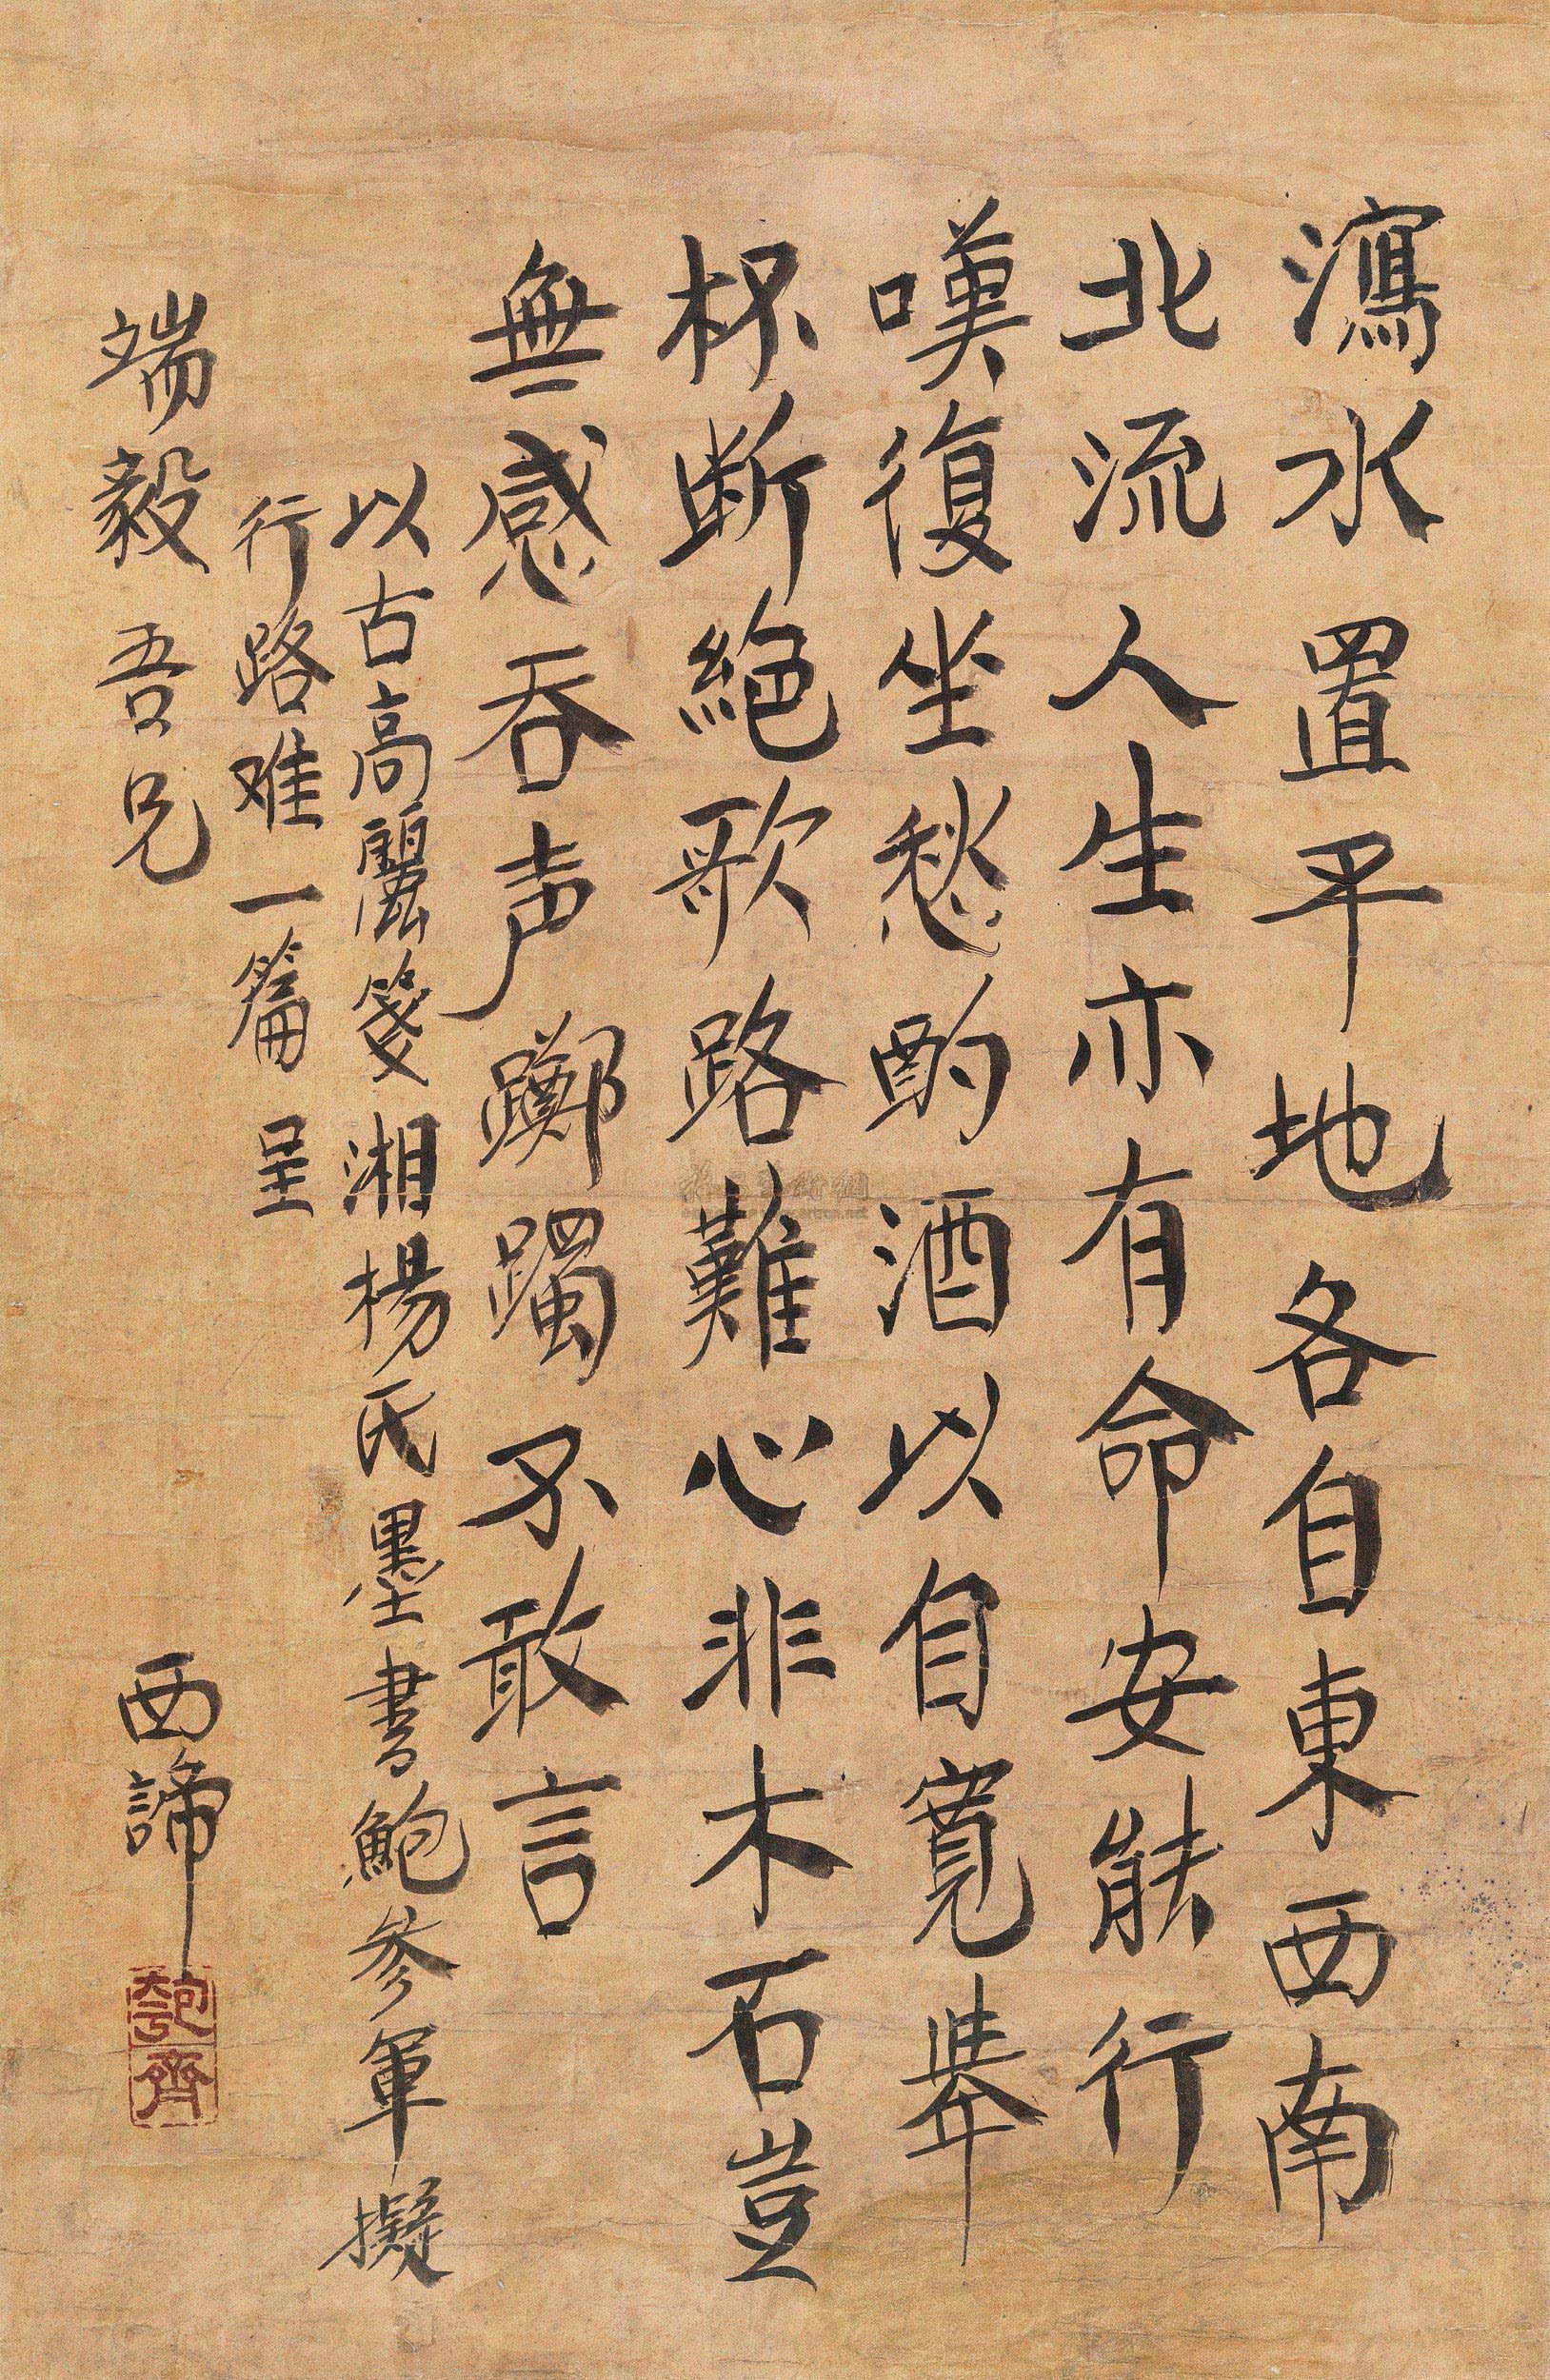 瀉水置平地各自東西南
北流人生亦有命安能行
嘆復坐愁酌酒以自寬舉
杯断絕歌路難心非木石豈
無感吞声躑躅不敢言
以古高麗箋湘楊氏墨書鮑参軍擬
行路难一篇呈
端毅吾兄
西諦
匏齊